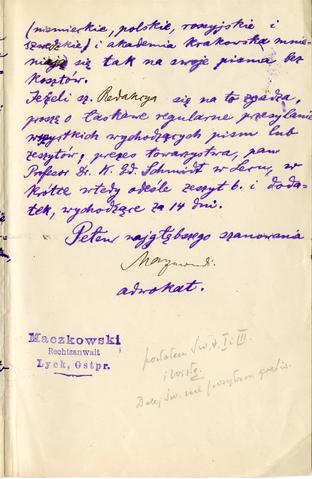 (niemieckie, polskie, rossyjskie i
czeskie) i akademia krakowska mnie-
niają się tak na swoje pisma bez
kosztów.
Jeżeli sz. Redakcya się na to zgadza,
proszę o łaskawe regularne przesyłanie
wszystkich wychodzących pism lub
zeszytów, prezes towarzystwa, pan
Profesor Dr. K. Ed. Schmidt w Łecu, w
krótce wtedy odeśle zeszyt 6. i doda-
tek, wychodzące za 14 dni.
Pełen najgłębszego szanowania
adwokat.
Maczkowski
Rechtsanwalt
Lyck, Ostpr.
posłałem Św. I. i III.
i Wisłę
Dalej Św. nie posyłam gratis.